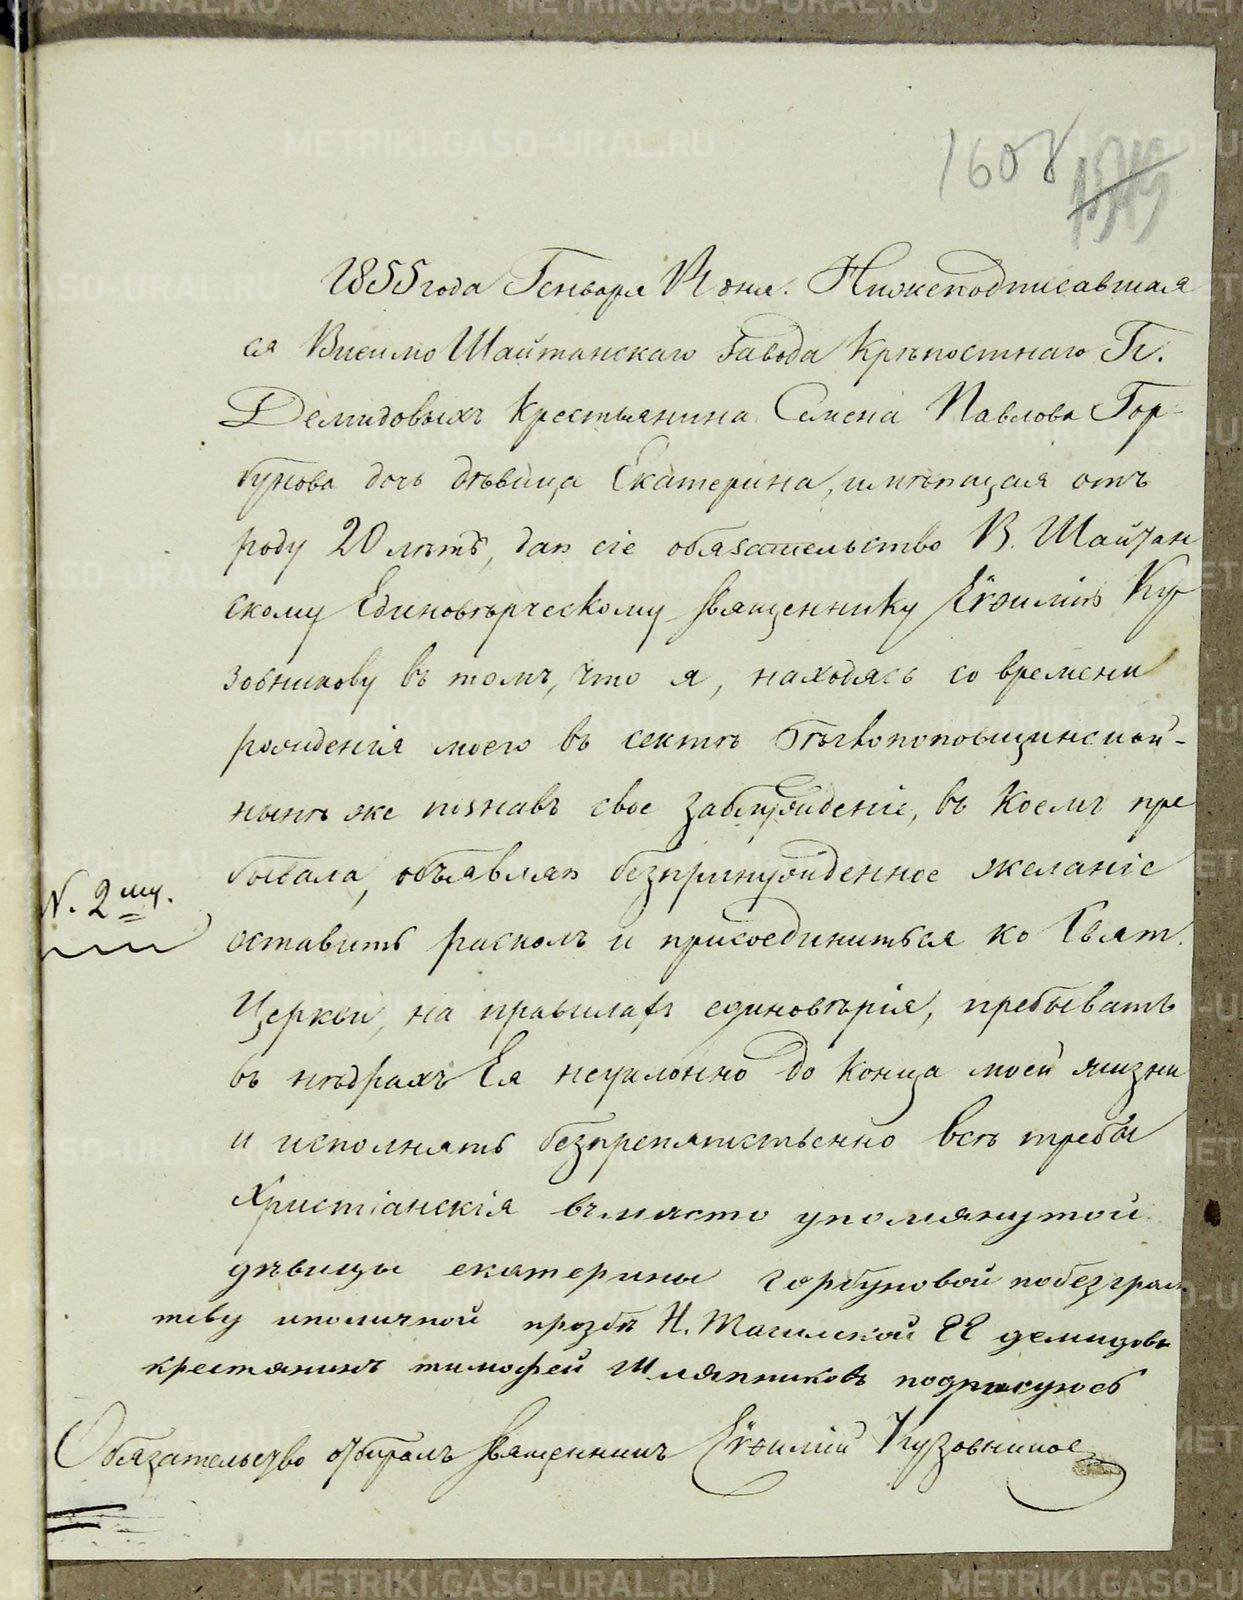 1608
1855 года Генваря дня. Нижеподписавшая
ся Висимо Шайтанскаго Завода Крѣпостнаго Гг.
Демидовыхъ Крестьянина Семена Павлова Гор-
бунова дочь дѣвица Екатерина, имѣющая отъ
роду 20 лѣтъ, даю сіе обязательство В. Шайтан
скому Единовѣрческому Священнику Евѳимію Ку
зовникову въ томъ, что я, находясь со времени
рожденія моего въ сектѣ бѣглопоповщинской-
нынѣ же познавъ свое заблужденіе, въ коемъ пре
бывала, объявляю безпринужденное желаніе
N. 2му.
оставить расколъ и присоединиться ко Свят.
Церкви, на правилахъ единовѣрія, пребывать
въ нѣдрахъ Ея неуклонно до конца моей жизни
и исполнять безпрепятственно всѣ требы
Христіанскія въмѣсто упомянутой
дѣвицы екатерины горбуновой побезграм
тву иполичной прозбѣ Н. Тагилской ГГ демидовъ
крестянинъ тимофей Шляпниковъ подписуюсь
Обязательство отбиралъ Священникъ Евѳимій Кузовниковъ
METRIKI.GASO-URAL.RU